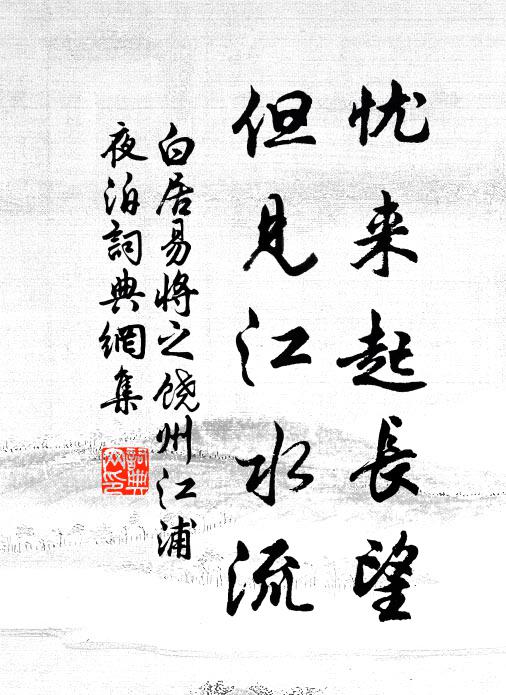 忧来起長望
但見江水流
白居易將之饶州江浦
夜泊詞典網集
詞典
网印